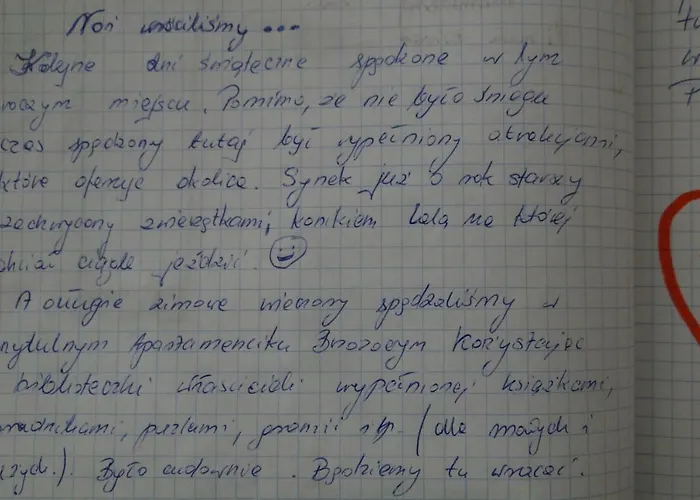 No i wróciliśmy ...
Kolejne dni świąteczne spędzone w tym
roczym miejscu. Pomimo, że nie było śniegu
czas spędzony tutaj był wypełniony atrakcjami,
które oferuje okolica. Synek już o rok starszy
zachwycony zwierzątkami, konikiem Lolą na której
chciał ciągle jeździć.
A długie zimowe wieczory spędzaliśmy w
ytulnym Apartamenciku Korzystając
biblioteczki właścicieli wypełnionej książkami,
puzlami, grami itp. (dla małych i
zych.). Było cudownie. Będziemy tu wracać.